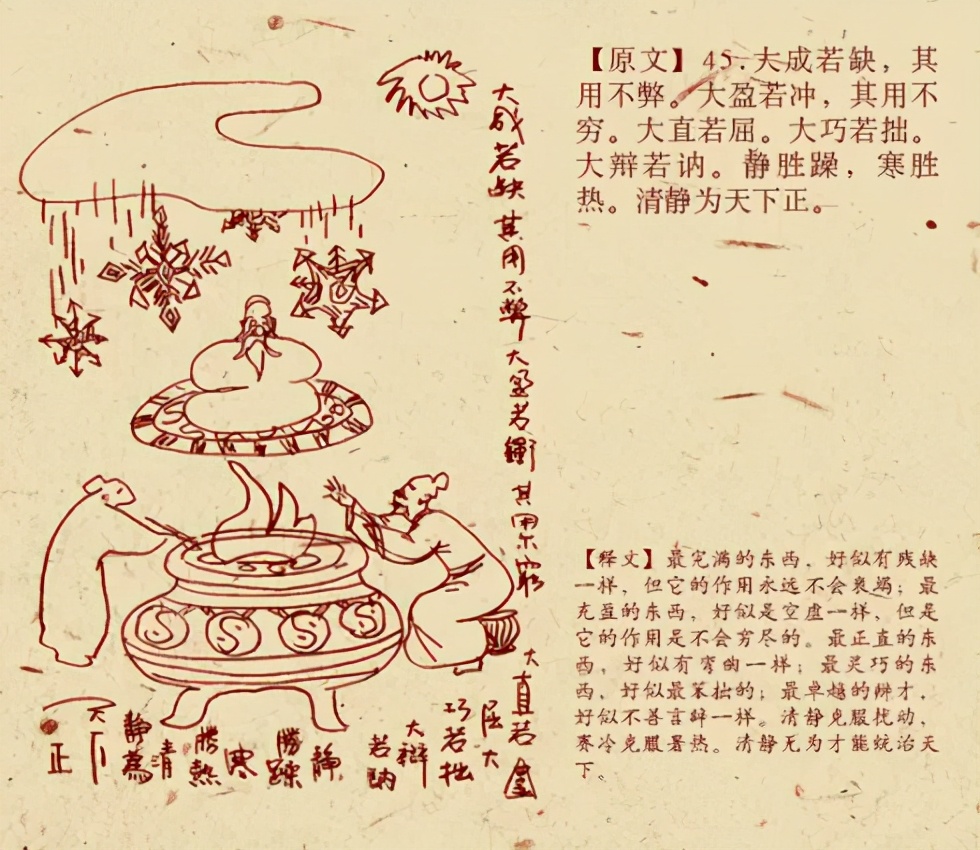 【原文】45.大成若缺，其
用不弊。大盈若冲，其用不
穷。大直若屈。大巧若拙。
大辩若讷。静胜躁，寒胜
热。清静为天下正。
【释文】最完满的东西，好似有残缺
一样，但它的作用永远不会衰竭；最
充盈的东西，好似是空虚一样，但是
它的作用是不会穷尽的。最正直的东
西，好似有弯曲一样；最灵巧的东
西，好似最笨拙的；最卓越的辩才，
好似不善言辞一样。清静克服扰动，
寒冷克服暑热。清静无为才能统治天
下。
大成若缺其用不弊大盈若衝其用不窮大直若
屈大
巧若拙
大辯
若訥
靜
勝躁
寒
勝熱
清
靜為
天下
正